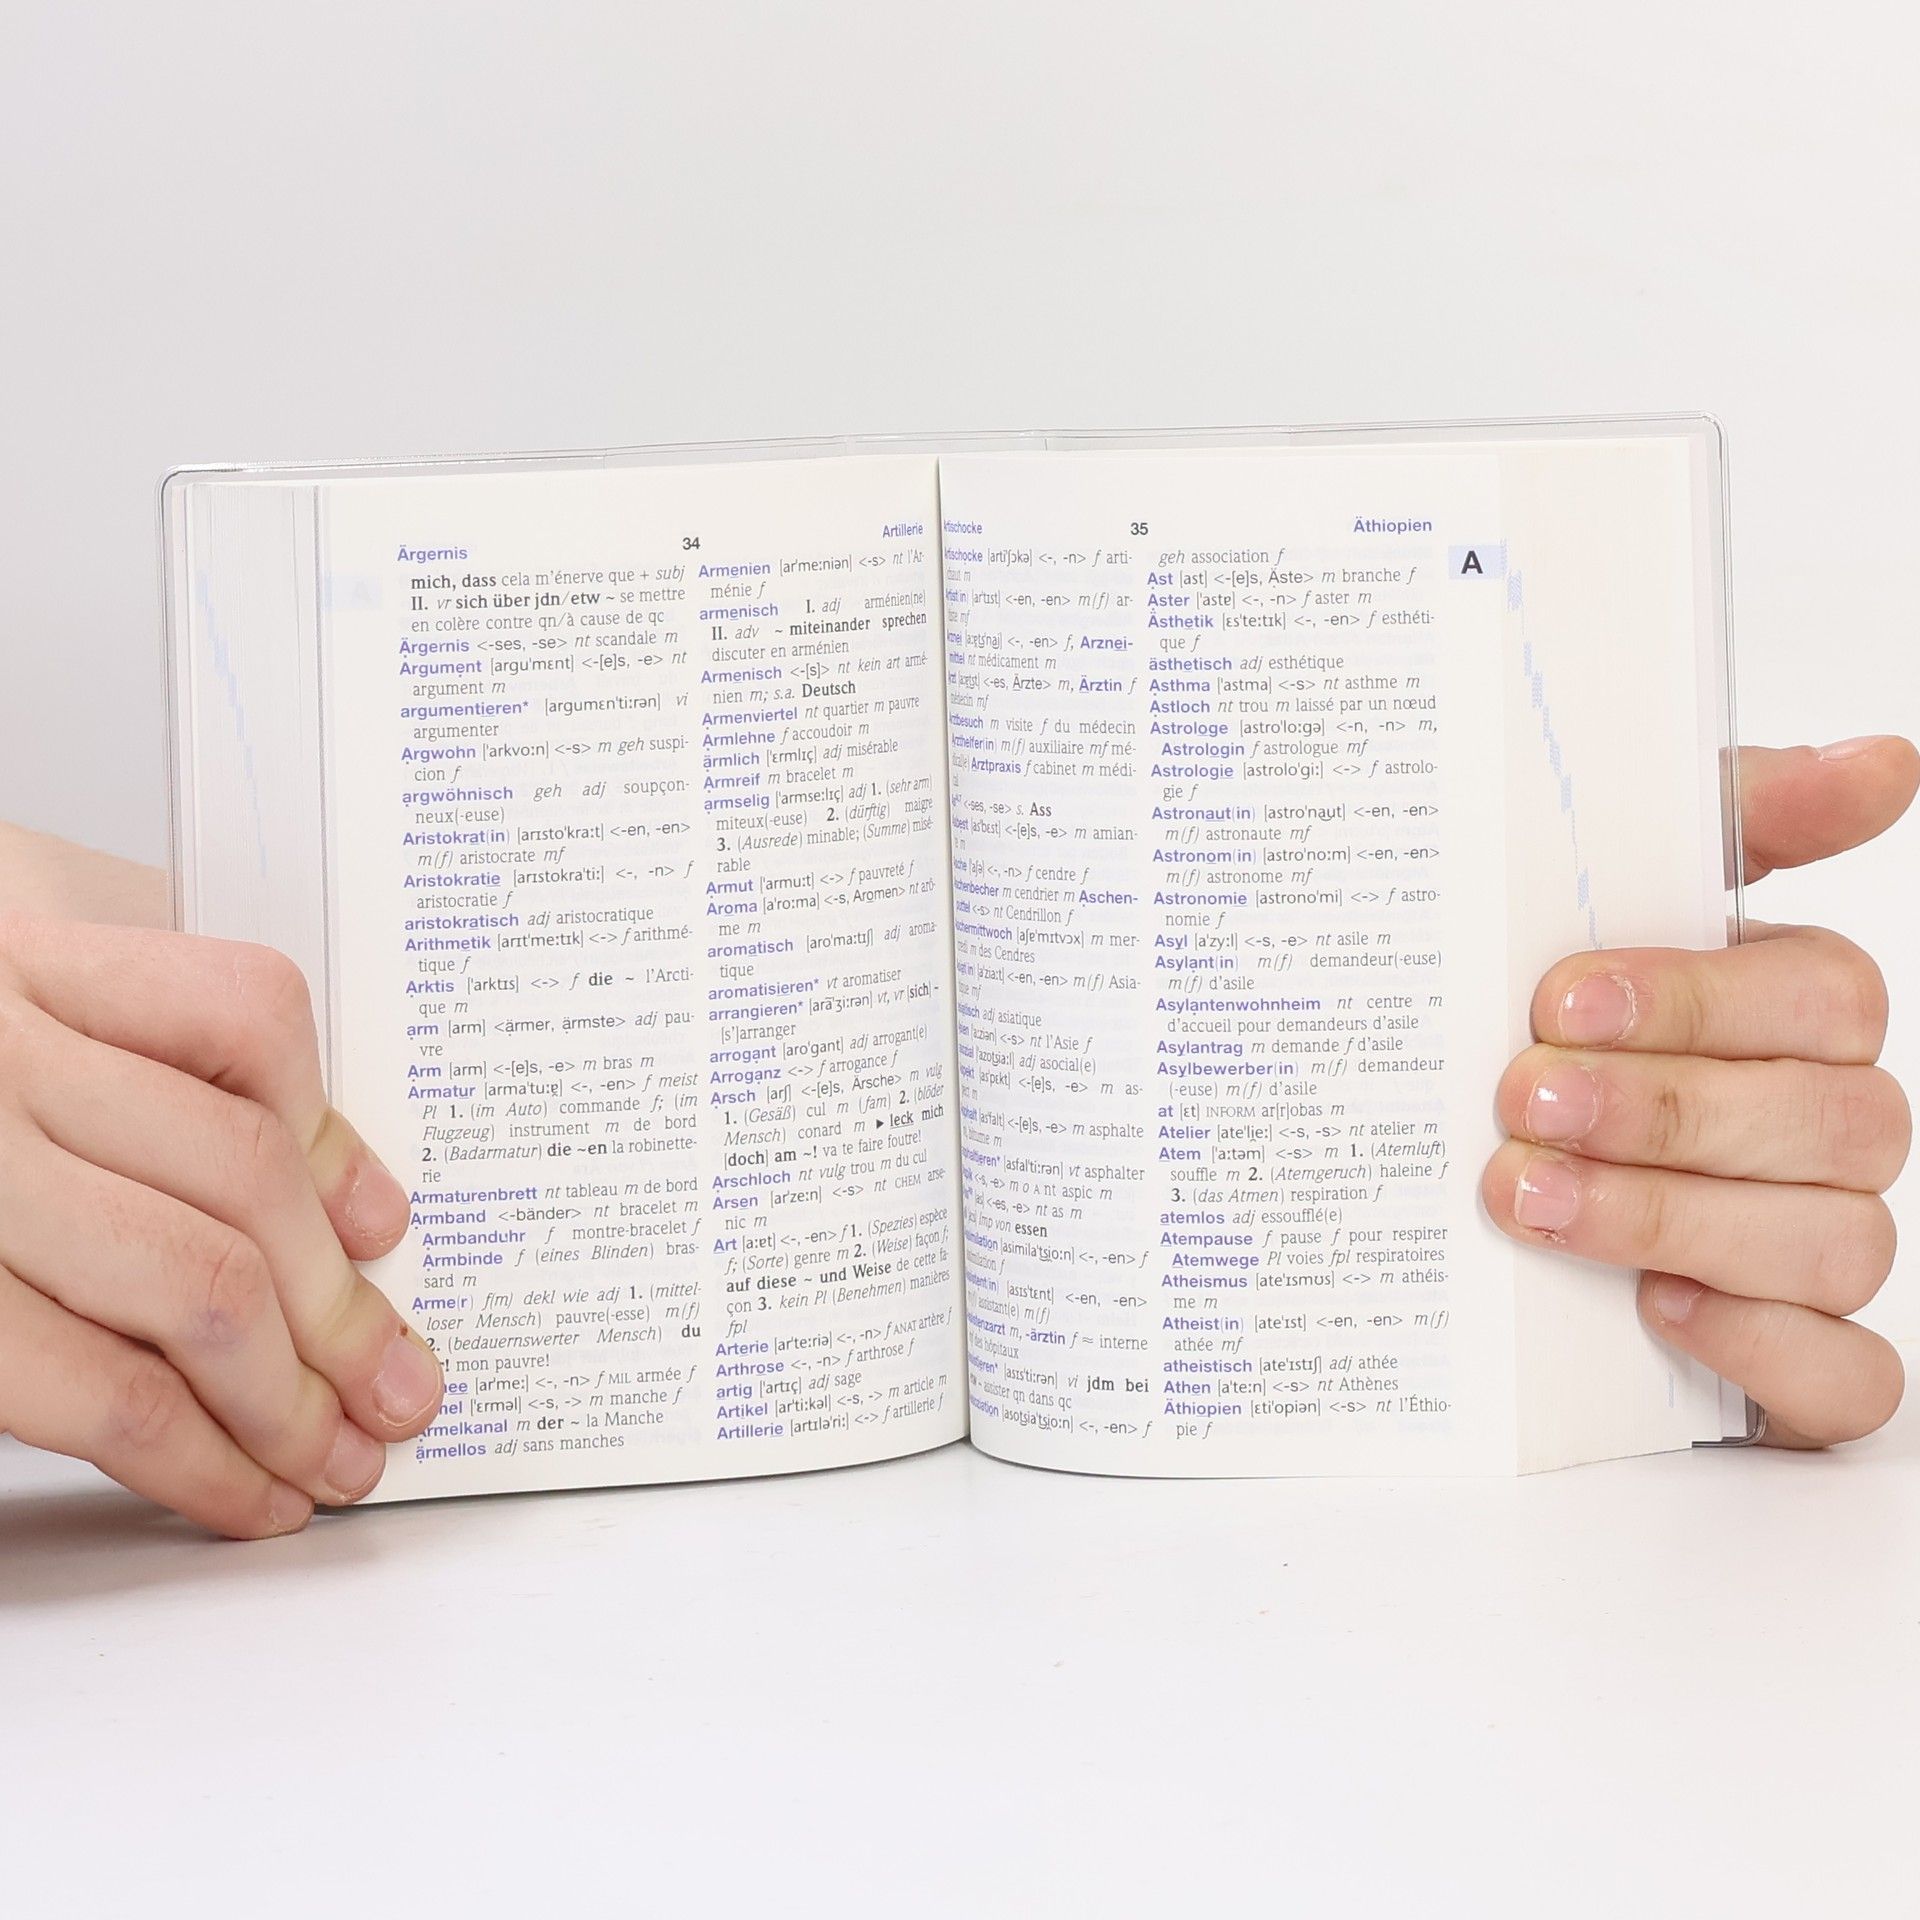 Ärgernis
34
Artillerie
mich, dass cela m'énerve que + subj
II. vr sich über jdn/etw ~ se mettre
en colère contre qn/à cause de qc
Ärgernis <-ses, -se> nt scandale m
Argument [argu'mɛnt] <-[e]s, -e> nt
argument m
argumentieren* [argumɛn'ti:rən] vi
argumenter
Argwohn ['arkvo:n] <-s> m geh suspi-
cion f
argwöhnisch geh adj soupçon-
neux(-euse)
Aristokrat(in) [arɪsto'kra:t] <-en, -en>
m(f) aristocrate mf
Aristokratie [arɪstokra'ti:] <-, -n> f
aristocratie f
aristokratisch adj aristocratique
Arithmetik [arɪt'me:tɪk] <-> f arithmé-
tique f
Arktis ['arktɪs] <-> f die ~ l'Arcti-
que m
arm [arm] <ärmer, ärmste> adj pau-
vre
Arm [arm] <-[e]s, -e> m bras m
Armatur [arma'tu:ɐ̯] <-, -en> f meist
Pl 1. (im Auto) commande f; (im
Flugzeug) instrument m de bord
2. (Badarmatur) die ~en la robinette-
rie
Armaturenbrett nt tableau m de bord
Armband <-bänder> nt bracelet m
Armbanduhr f montre-bracelet f
Armbinde f (eines Blinden) bras-
sard m
Arme(r) f(m) dekl wie adj 1. (mittel-
loser Mensch) pauvre(-esse) m(f)
2. (bedauernswerter Mensch) du
! mon pauvre!
[ar'me:] <-, -n> f MIL armée f
['ɛrməl] <-s, -> m manche f
Ärmelkanal m der ~ la Manche
ärmellos adj sans manches
Armenien [ar'me:niən] <-s> nt l'Ar-
ménie f
armenisch I. adj arménien(ne)
II. adv ~ miteinander sprechen
discuter en arménien
Armenisch <-[s]> nt kein art armé-
nien m; s.a. Deutsch
Armenviertel nt quartier m pauvre
Armlehne f accoudoir m
ärmlich ['ɛrmlɪç] adj misérable
Armreif m bracelet m
armselig ['armse:lɪç] adj 1. (sehr arm)
miteux(-euse) 2. (dürftig) maigre
3. (Ausrede) minable; (Summe) misé-
rable
Armut ['armu:t] <-> f pauvreté f
Aroma [a'ro:ma] <-s, Aromen> nt arô-
me m
aromatisch [aro'ma:tɪʃ] adj aroma-
tique
aromatisieren* vt aromatiser
arrangieren* [arã'ʒi:rən] vt, vr [sich] ~
[s']arranger
arrogant [aro'gant] adj arrogant(e)
Arroganz <-> f arrogance f
Arsch [arʃ] <-[e]s, Ärsche> m vulg
1. (Gesäß) cul m (fam) 2. (blöder
Mensch) conard m ▶ leck mich
[doch] am ~! va te faire foutre!
Arschloch nt vulg trou m du cul
Arsen [ar'ze:n] <-s> nt CHEM arse-
nic m
Art [a:ɐt] <-, -en> f 1. (Spezies) espèce
f; (Sorte) genre m 2. (Weise) façon f;
auf diese ~ und Weise de cette fa-
çon 3. kein Pl (Benehmen) manières
fpl
Arterie [ar'te:riə] <-, -n> f ANAT artère f
Arthrose <-, -n> f arthrose f
artig ['artɪç] adj sage
Artikel [ar'ti:kəl] <-s, -> m article m
Artillerie [artɪlə'ri:] <-> f artillerie f
Artischocke
35
Äthiopien
A
Artischocke [arti'ʃɔkə] <-, -n> f arti-
chaut m
[ar'tɪst] <-en, -en> m(f) ar-
mf
<-, -en> f, Arznei-
mittel nt médicament m
<-es, Ärzte> m, Ärztin f
médecin mf
Arztbesuch m visite f du médecin
Arzthelfer(in) m(f) auxiliaire mf mé-
Arztpraxis f cabinet m médi-
cal
<-ses, -se> s. Ass
[as'bɛst] <-[e]s, -e> m amian-
te m
['aʃə] <-, -n> f cendre f
Aschenbecher m cendrier m Aschen-
puttel <-s> nt Cendrillon f
Aschermittwoch [aʃɐ'mɪtvɔx] m mer-
credi m des Cendres
[a'zia:t] <-en, -en> m(f) Asia-
mf
adj asiatique
<-s> nt l'Asie f
adj asocial(e)
[as'pɛkt] <-[e]s, -e> m as-
pect m
[as'falt] <-[e]s, -e> m asphalte
m, bitume m
[asfal'ti:rən] vt asphalter
<-s, -e> m O A nt aspic m
[as] <-es, -e> nt as m
Imp von essen
[asimila'tsio:n] <-, -en> f
assimilation f
[asɪs'tɛnt] <-en, -en>
assistant(e) m(f)
m, -ärztin f ≈ interne
des hôpitaux
[asɪs'ti:rən] vi jdm bei
~ assister qn dans qc
[asotsia'tsio:n] <-, -en> f
geh association f
Ast [ast] <-[e]s, Äste> m branche f
Aster ['astɐ] <-, -n> f aster m
Ästhetik [ɛs'te:tɪk] <-, -en> f esthéti-
que f
ästhetisch adj esthétique
Asthma ['astma] <-s> nt asthme m
Astloch nt trou m laissé par un nœud
Astrologe [astro'lo:gə] <-n, -n> m,
Astrologin f astrologue mf
Astrologie [astrolo'gi:] <-> f astrolo-
gie f
Astronaut(in) [astro'naut] <-en, -en>
m(f) astronaute mf
Astronom(in) [astro'no:m] <-en, -en>
m(f) astronome mf
Astronomie [astrono'mi] <-> f astro-
nomie f
Asyl [a'zy:l] <-s, -e> nt asile m
Asylant(in) m(f) demandeur(-euse)
m(f) d'asile
Asylantenwohnheim nt centre m
d'accueil pour demandeurs d'asile
Asylantrag m demande f d'asile
Asylbewerber(in) m(f) demandeur
(-euse) m(f) d'asile
at [ɛt] INFORM ar[r]obas m
Atelier [ate'lje:] <-s, -s> nt atelier m
Atem ['a:təm] <-s> m 1. (Atemluft)
souffle m 2. (Atemgeruch) haleine f
3. (das Atmen) respiration f
atemlos adj essoufflé(e)
Atempause f pause f pour respirer
Atemwege Pl voies fpl respiratoires
Atheismus [ate'ɪsmʊs] <-> m athéis-
me m
Atheist(in) [ate'ɪst] <-en, -en> m(f)
athée mf
atheistisch [ate'ɪstɪʃ] adj athée
Athen [a'te:n] <-s> nt Athènes
Äthiopien [ɛti'opiən] <-s> nt l'Éthio-
pie f